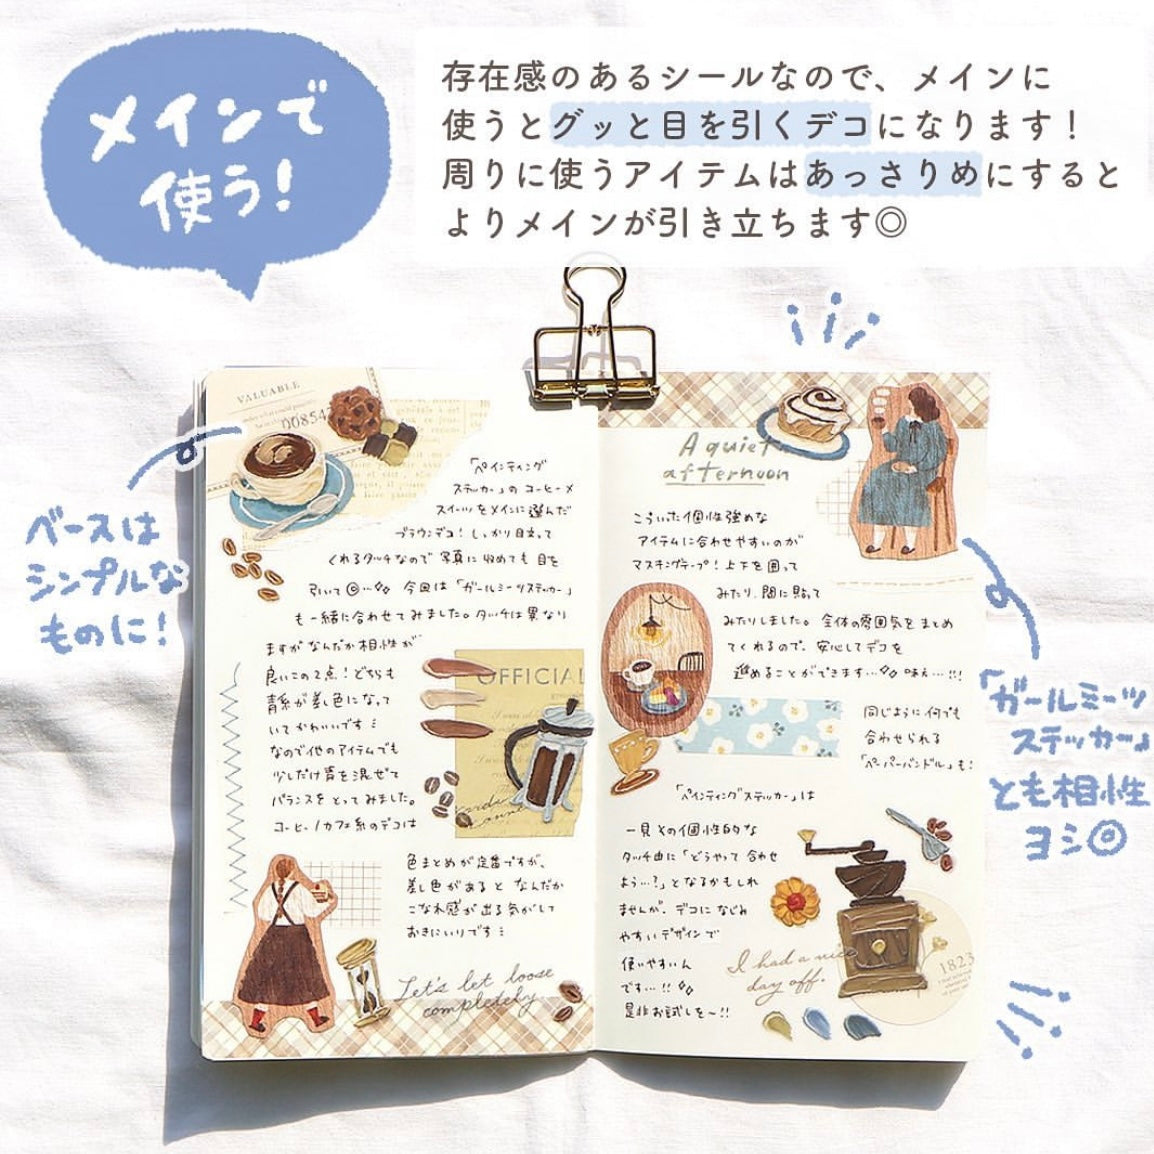 メインで
使う!
存在感のあるシールなので、メインに
使うとグッと目を引くデコになります!
周りに使うアイテムはあっさりめにすると
よりメインが引き立ちます◎
ベースは
シンプルな
ものに!
VALUABLE
008547
「ペインティング
ステッカー」の コーヒーメ
スイーツをメインに選んだ
ブラウンデコ! しっかり目立って
くれるタッチなので 写真に収めても 目を
引いて◎…今回は「ガールミーツステッカー」
も一緒に合わせてみました。タッチは異なり
ますが なんだか相性が
良いこの2点!どちらも
青系が差し色になって
いて かわいいです
なので他のアイテムでも
少しだけ青を混ぜて
バランスを とってみました。
コーヒー/カフェ系のデコは
色まとめが定番ですが、
差し色があると なんだか
こなれ感が出る気がして
おきにいりです
OFFICIAL
Let's let loose
completely
A quiet
afternoon
こういった個性強めな
アイテムに合わせやすいのが
マスキングテープ!上下を囲って
みたり、間に貼って
みたりしました。全体の雰囲気をまとめ
てくれるので、安心してデコを
進めることができます…味方…!!!
同じように何でも
合わせられる
「ペーパーバンドル」も!
「ペインティングステッカー」は
一見その個性的な
タッチ由に「どうやって合わせ
よう…?」となるかもしれ
ませんが、デコになじみ
やすいデザインで
使いやすいん
です…!!
是非お試しを〜!!
I had a nice
day off.
1823
「ガールミーツ
ステッカー」
とも相性
ヨシ◎